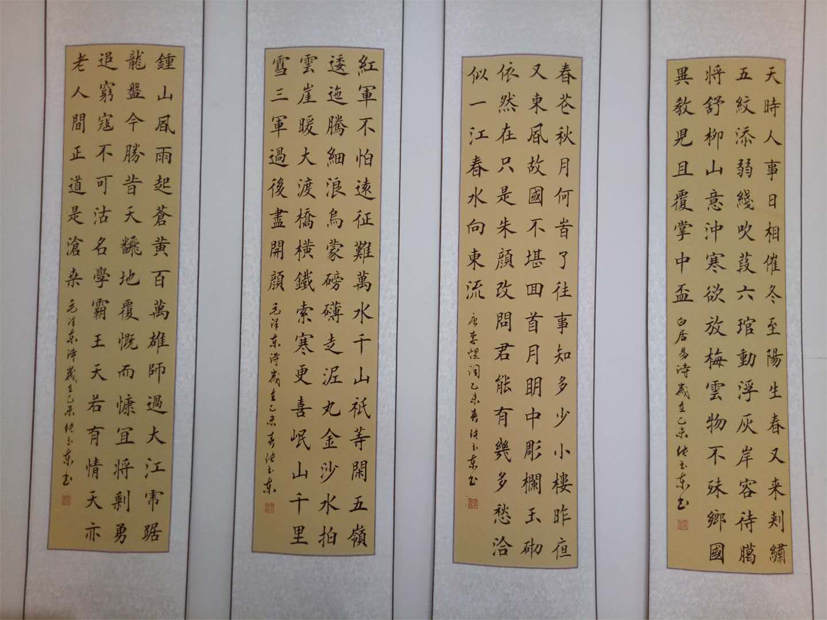 天時人事日相催冬至陽生春又来刾繡
五紋添弱綫吹葭六琯動浮灰岸容待臈
將舒柳山意沖寒欲放梅雲物不殊鄉國
異教兒且覆掌中盃 白居易詩歲在乙未张玉東书
春花秋月何旹了往事知多少小樓昨亱
又東風故國不堪回首月明中彫欄玉砌
依然在只是朱顏改問君能有幾多愁洽
似一江春水向東流 李煜词乙未春张玉東书
紅軍不怕遠征難萬水千山衹等閑五嶺
逶迤騰細浪烏蒙磅礴走泥丸金沙水拍
雲崖暖大渡橋橫鐵索寒更喜岷山千里
雪三軍過後盡開顏 毛泽東诗歲在乙未春张玉東
鍾山風雨起蒼黃百萬雄師過大江虎踞
龍盤今勝昔天翻地覆慨而慷宜將剩勇
追窮寇不可沽名學霸王天若有情天亦
老人間正道是滄桑 毛泽東诗歲在乙未张玉東书